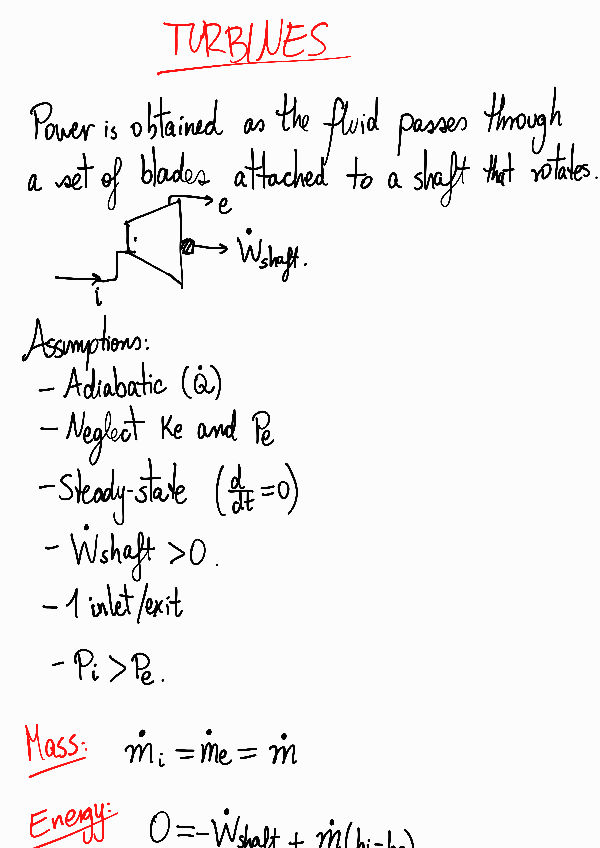 TURBINES
Power is obtained as the fluid passes through
a set of blades attached to a shaft that rotates.
e
Ẇshaft.
i
Assumptions:
- Adiabatic (Q̇)
- Neglect Ke and Pe
- Steady-state (d/dt = 0)
- Ẇshaft > 0.
- 1 inlet/exit
- Pi > Pe.
Mass: ṁi = ṁe = ṁ
Energy: 0 = -Ẇshaft + ṁ(hi-he)